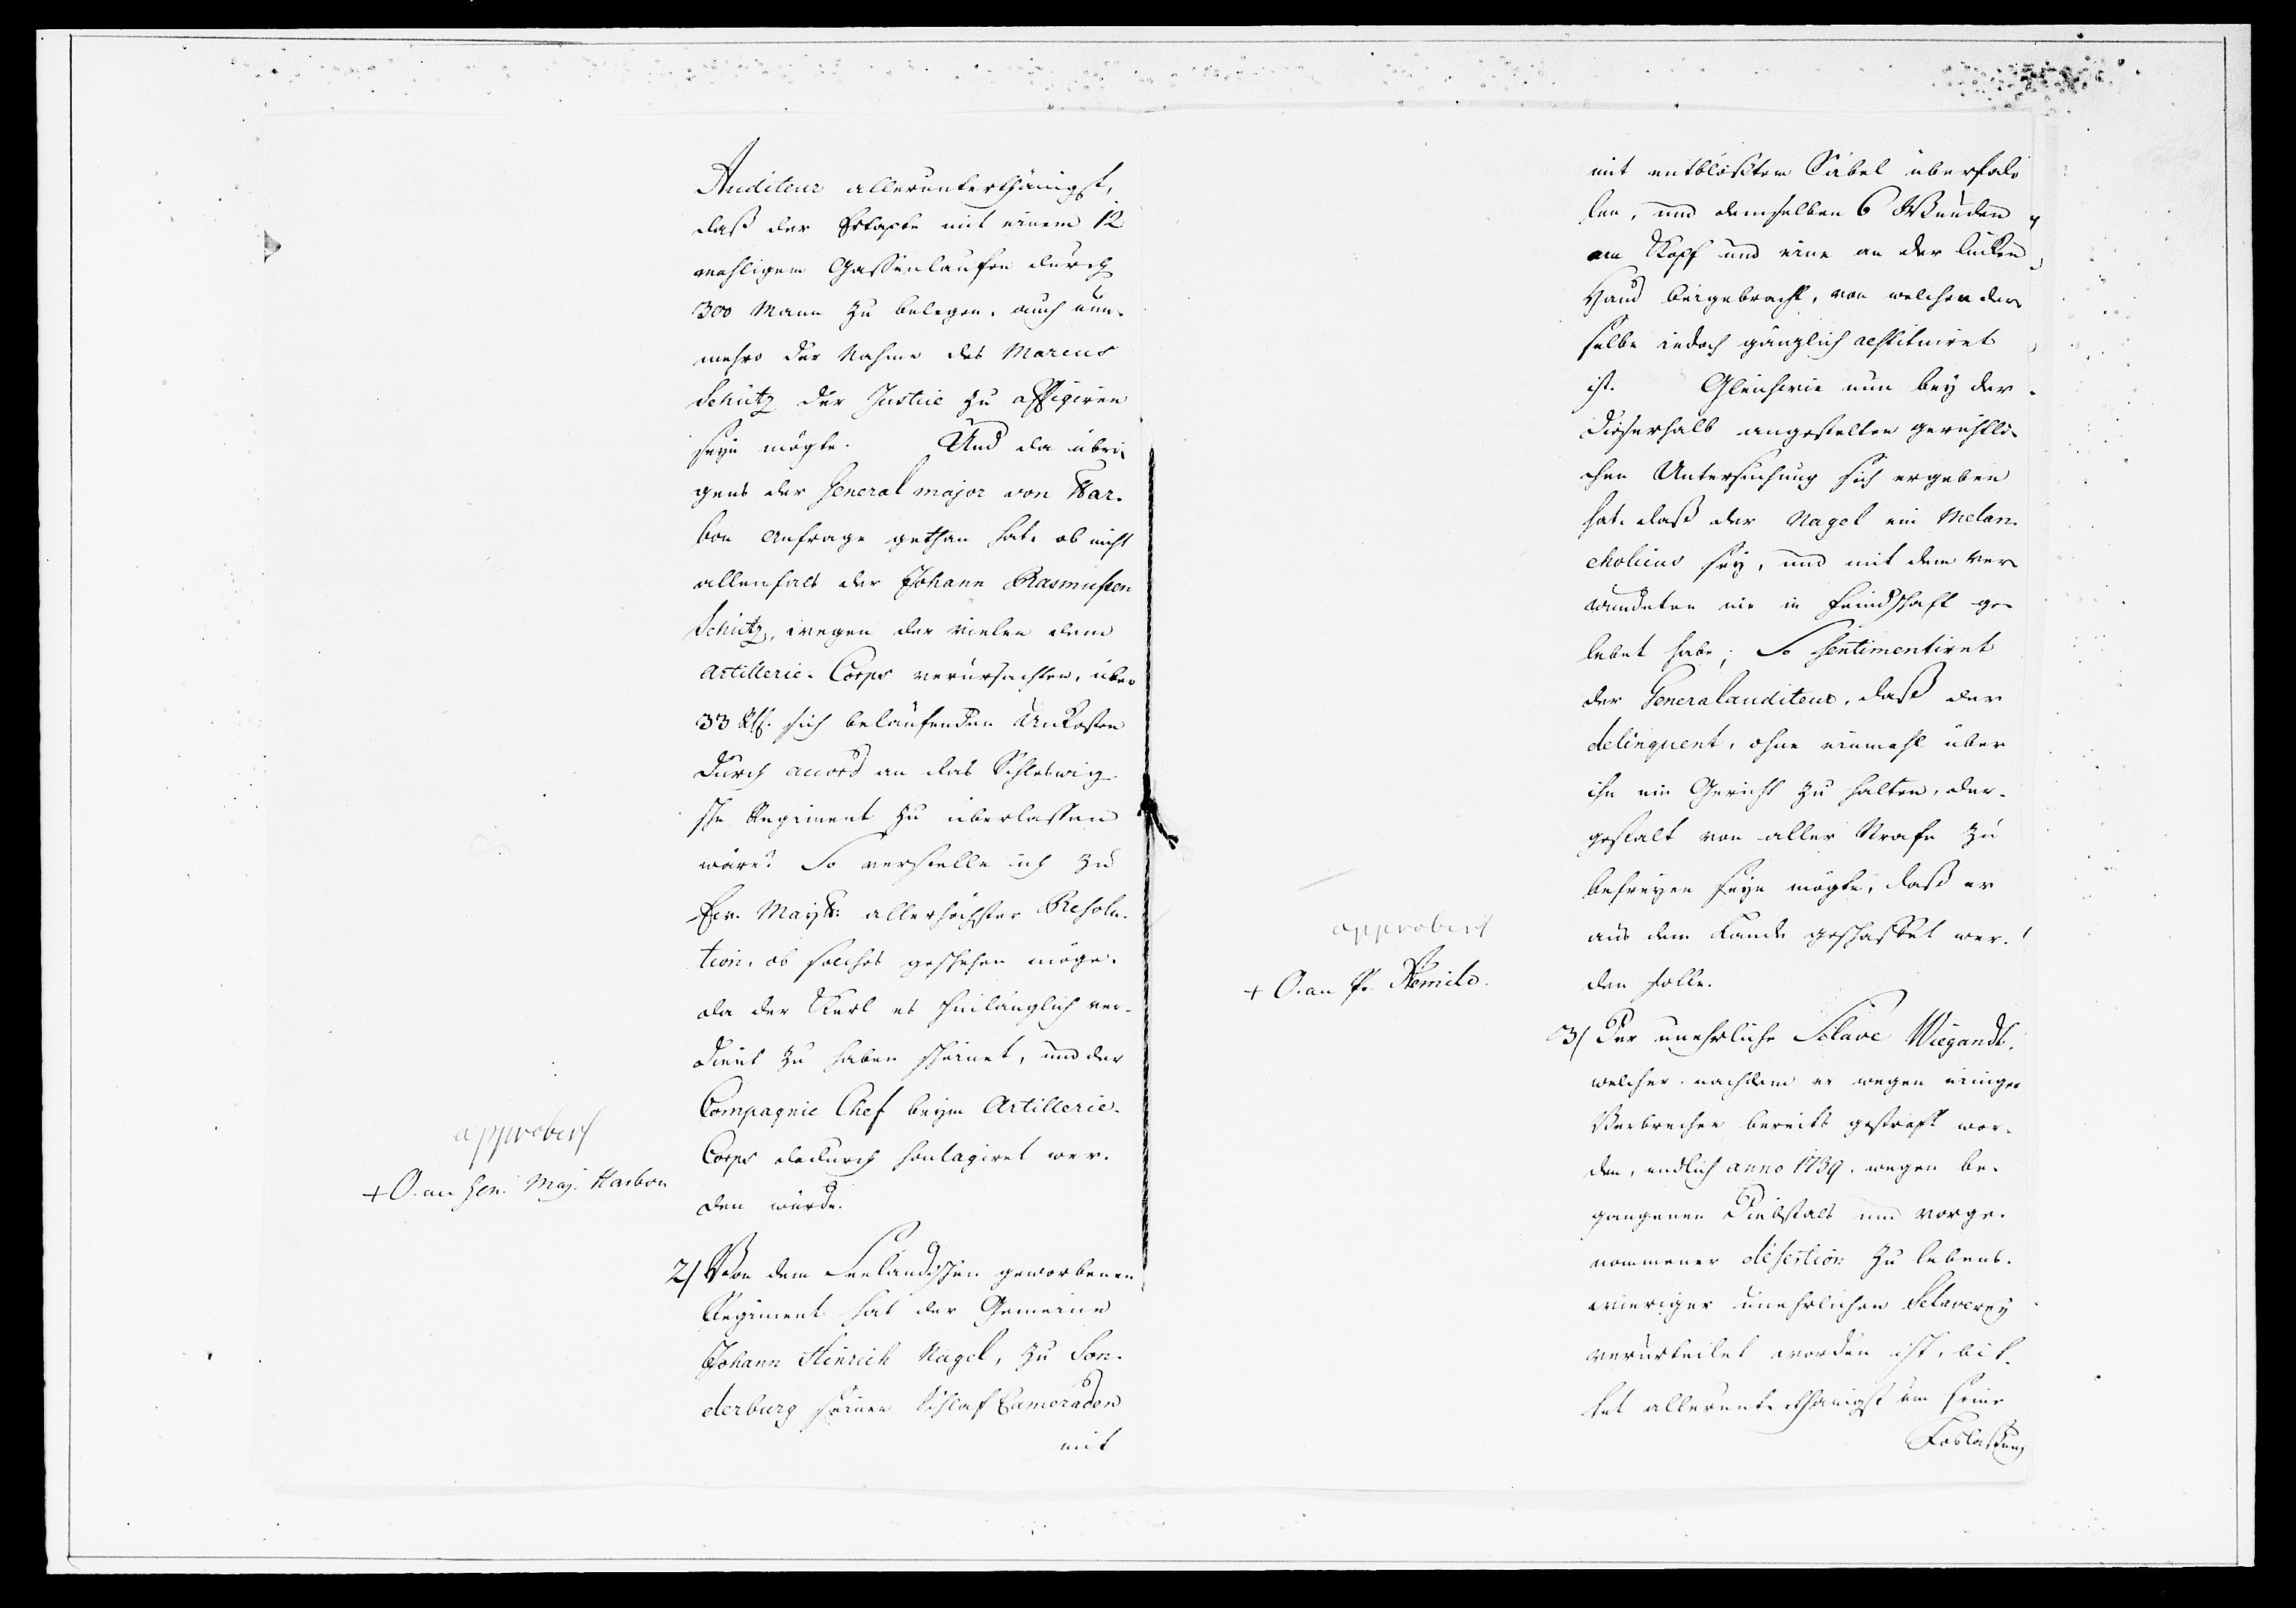 Auditeur allerunterthänigst,
daß der Ertapte mit einem 12
mahligem Gassenlaufen durch
300 Mann zu belegen, auch nun-
mehro der Nahme des Marcus
Schütz der Justice zu affigiren
seyn mögte. Und da übri-
gens der General major von Har-
bou Anfrage gethan hat, ob nicht
allenfals der Johann Rasmussen
Schütz, wegen der vielen dem
Artillerie-Corps verursachten, über
33 Rthl. sich belaufenden Unkosten
durch accord an das Schleswig-
sche Regiment zu überlassen
wäre? So verstelle ich zu
Ew. Maytt: allerhöchster Resolu-
tion, ob solches geschehen möge,
da der Kerl es hinlänglich ver-
dient zu haben scheinet, und der
Compagnie Chef beym Artillerie-
Corps dadurch soulagiret wer-
den würde.
approbirt
+ O. an Gen. Maj. Harbou
2) Von dem Seelandischen geworbenen
Regiment hat der Gemeine
Johann Hinrich Nagel, zu Son-
derburg seinen Schlaf Cameraden
mit
mit entblößtem Säbel überfal-
len, und demselben 6 Wunden
am Kopf und eine an der linken
Hand beigebracht, von welchen der-
selbe jedoch gänzlich restituiret
ist. Gleichwie nun bey der
dieserhalb angestelten gerichtli-
chen Untersuchung sich ergeben
hat, daß der Nagel ein Melan-
cholicus sey, und mit dem Ver-
wundeten nie in Feindschaft ge-
lebet habe; So sentimentiret
der Generalauditeur, daß der
delinquent, ohne einmahl über
ihn ein Gericht zu halten, der-
gestalt von aller Strafe zu
befreyen seyn mögte, daß er
aus dem Lande geschaffet wer-
den solle.
approbirt
+ O. an Pr. Æmil.
3) Der unehrliche Sclave Wiegandt,
welcher, nachdem er wegen einiger
Verbrechen bereits gestraft wor-
den, endlich anno 1739, wegen be-
gangenen Diebstals und vorge-
nommener desertion zu lebens-
wieriger unehrlichen Sclaverey
verurteilet worden ist, bit-
tet allerunterthänigst um seine
Loslassung